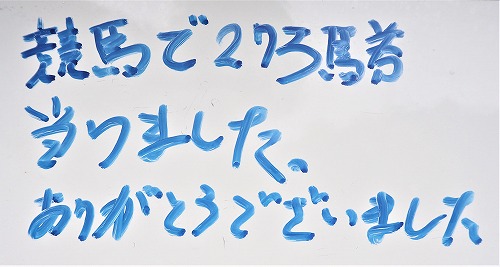 競馬で273馬券
当りました、
ありがとうございました